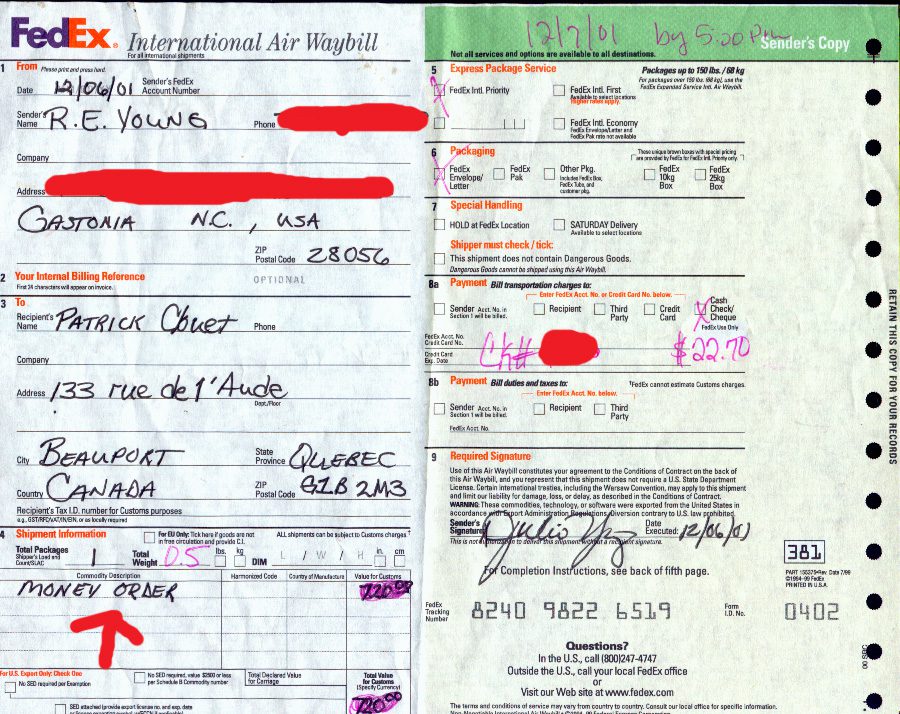 FedEx® International Air Waybill
For all international shipments
1 From Please print and press hard.
Date 12/06/01 Sender's FedEx Account Number
Sender's Name R.E. YOUNG Phone
Company
Address
GASTONIA N.C., USA
ZIP Postal Code 28056
2 Your Internal Billing Reference OPTIONAL
First 24 characters will appear on invoice.
3 To
Recipient's Name PATRICK Phone
Company
Address 133 rue de l'Aude
Dept./Floor
City BEAUPORT State Province QUEBEC
Country CANADA ZIP Postal Code G1B 2M3
Recipient's Tax I.D. number for Customs purposes
e.g., GST/RFC/VAT/IN/EIN, or as locally required
4 Shipment Information
For EU Only: Tick here if goods are not in free circulation and provide C.I.
ALL shipments can be subject to Customs charges
Total Packages 1 Total Weight 0.5 lbs. kg DIM L / W / H in. cm
Shipper's Load and Count/SLAC
Commodity Description Harmonized Code Country of Manufacture Value for Customs
MONEY ORDER 720.00
For U.S. Export Only: Check One
No SED required per Exemption
No SED required, value $2500 or less per Schedule B Commodity number
Total Declared Value for Carriage
Total Value for Customs (Specify Currency)
720.00
SED attached (provide export license no. and exp. date
12/7/01 by 5:00 Pm
Sender's Copy
Not all services and options are available to all destinations.
5 Express Package Service Packages up to 150 lbs. / 68 kg
For packages over 150 lbs. (68 kg), use the FedEx Expanded Service Intl. Air Waybill.
FedEx Intl. Priority
FedEx Intl. First
Available to select locations
Higher rates apply.
FedEx Intl. Economy
FedEx Envelope/Letter and FedEx Pak rate not available
6 Packaging
These unique brown boxes with special pricing are provided by FedEx for FedEx Intl. Priority only.
FedEx Envelope/Letter
FedEx Pak
Other Pkg.
Includes FedEx Box, FedEx Tube, and customer pkg.
FedEx 10kg Box
FedEx 25kg Box
7 Special Handling
HOLD at FedEx Location
SATURDAY Delivery
Available to select locations
Shipper must check / tick:
This shipment does not contain Dangerous Goods.
Dangerous Goods cannot be shipped using this Air Waybill.
8a Payment Bill transportation charges to:
Enter FedEx Acct. No. or Credit Card No. below.
Sender Acct. No. in Section 1 will be billed.
Recipient
Third Party
Credit Card
Cash Check/Cheque
FedEx Use Only
FedEx Acct. No.
Credit Card No.
Ck# $22.70
Credit Card Exp. Date
8b Payment Bill duties and taxes to: †FedEx cannot estimate Customs charges.
Enter FedEx Acct. No. below.
Sender Acct. No. in Section 1 will be billed.
Recipient
Third Party
FedEx Acct. No.
9 Required Signature
Use of this Air Waybill constitutes your agreement to the Conditions of Contract on the back of
this Air Waybill, and you represent that this shipment does not require a U.S. State Department
License. Certain international treaties, including the Warsaw Convention, may apply to this shipment
and limit our liability for damage, loss, or delay, as described in the Conditions of Contract.
WARNING: These commodities, technology, or software were exported from the United States in
accordance with Export Administration Regulations. Diversion contrary to U.S. law prohibited.
Sender's Signature Date Executed: 12/06/01
This is not authorization to deliver this shipment without a recipient signature.
For Completion Instructions, see back of fifth page.
381
PART 155375 Rev. Date 7/99
©1994-99 FedEx
PRINTED IN U.S.A.
FedEx Tracking Number 8240 9822 6519 Form I.D. No. 0402
Questions?
In the U.S., call (800)247-4747
Outside the U.S., call your local FedEx office
or
Visit our Web site at www.fedex.com
The terms and conditions of service may vary from country to country. Consult our local office for specific information.
RETAIN THIS COPY FOR YOUR RECORDS